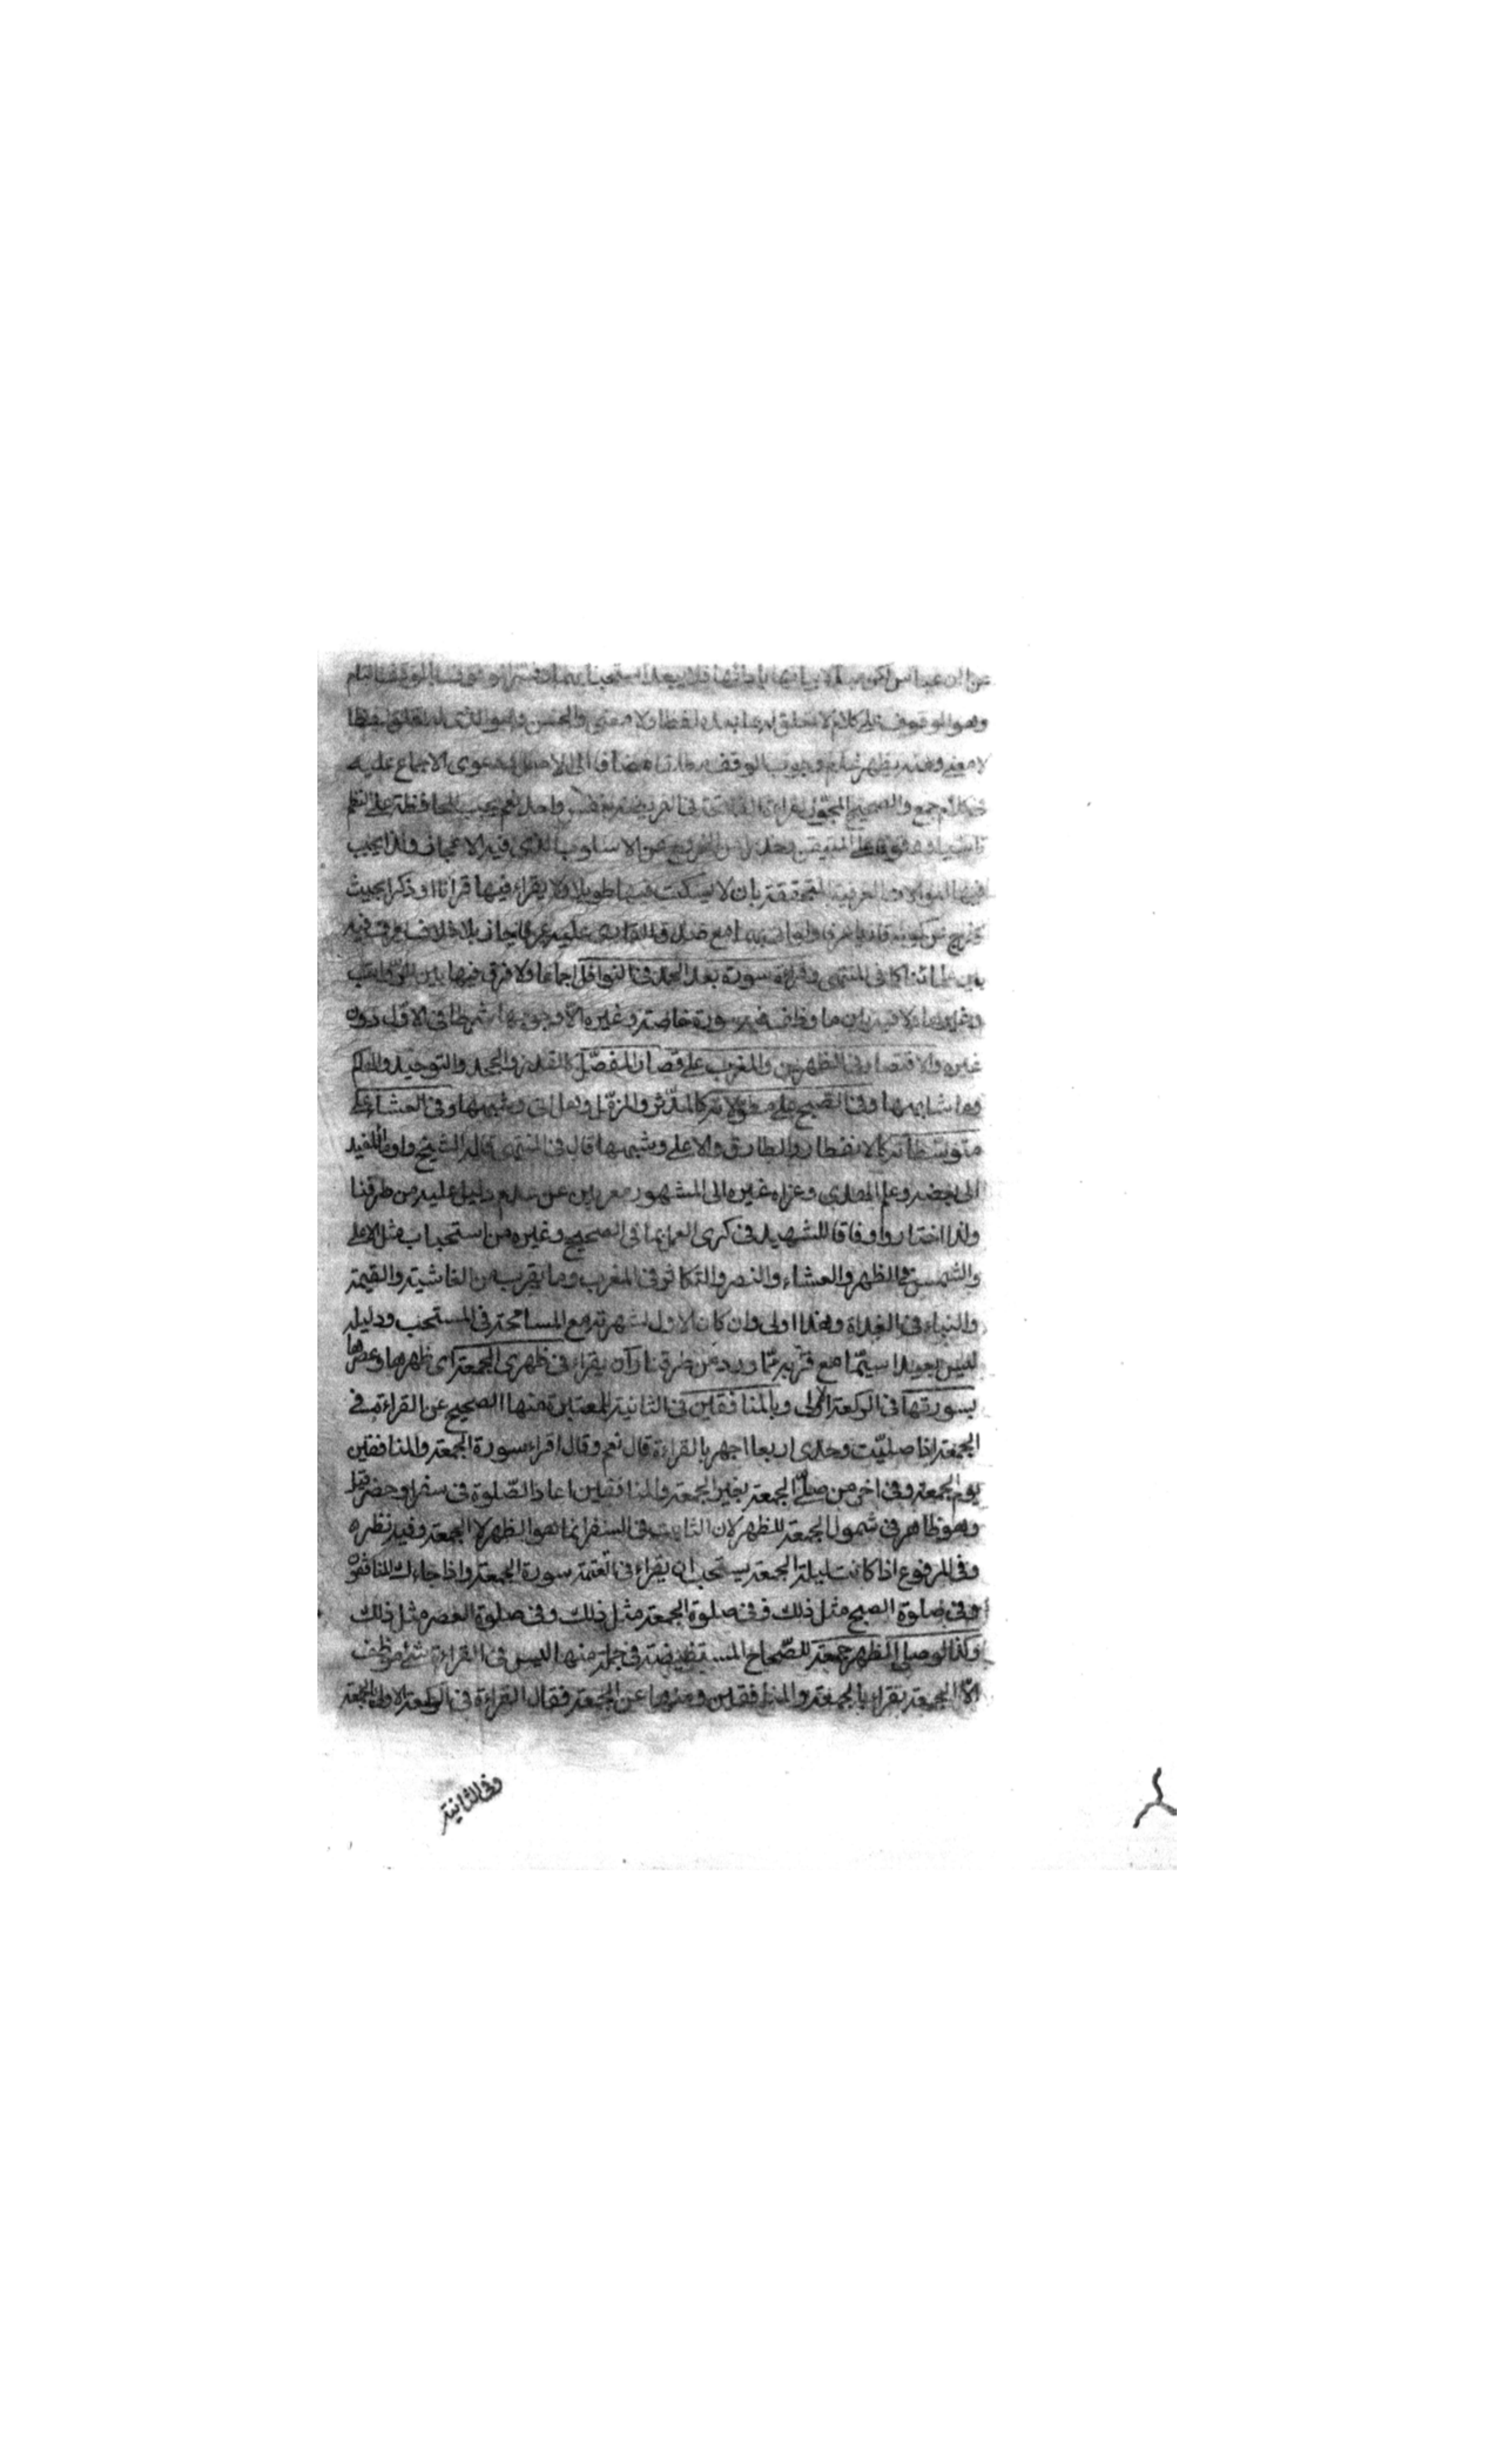 عن ابن عباس لكن
وهو الوقوف على كلام لا تعلق له بما بعده لفظا ولا معنى والحسن وهو الذى له تعلق لفظا
لا معنى ومنه يظهر عدم وجوب الوقف مطلقا مضافا الى الاصل ودعوى الاجماع عليه
فى كلام جمع والصحيح المجوّز لقراءة الفاتحة فى الفريضة بنفس واحد نعم يجب المحافظة على النظم
على المتيقن وحذرا من الخروج عن الاسلوب الذى فيه الاعجاز ولذا يجب
فيها الموالاة العرفية المتحققة بان لا يسكت فيها طويلا ولا يقراء فيها قرانا او ذكرا بحيث
يخرج عن كونه قاريا عرفا مع صدق القارى عليه عرفا جاز بلا خلاف فيه
بين علمائنا كما فى المنتهى وقراءة سورة بعد الحمد فى النوافل اجماعا ولا فرق فيها بين الرواتب
وغيرها ولا فيه بين ما وظف فيه سورة خاصة وغيره الا وجوبها شرطا فى الاول دون
غيره والاقتصار فى الظهرين والمغرب على قصار المفصّل كالقدر والجحد والتوحيد والهيكم
وما شابهها وفى الصبح على مطولاته كالمدّثر والمزمّل وهل اتى وشبهها وفى العشاء على
متوسطاته كالانفطار والطارق والاعلى وشبهها قال فى المنتهى قاله الشيخ
وعزاه غيره الى المشهور معربين عن عدم دليل عليه من طرقنا
ولذا اختاروا وفاقا للشهيد فى كرى العمل بما فى الصحيح وغيره من استحباب مثل الاعلى
والشمس فى الظهر والعشاء والنصر والتكاثر فى المغرب وما يقرب من الغاشية والقيمة
والنباء فى الغداة وهذا اولى وان كان الاول لشهرته مع المسامحة فى المستحب ودليله
ليس بعيدا سيّما مع قربه ممّا ورد من طرقنا وان يقراء فى ظهرى الجمعة اى ظهرها وعصرها
بسورتها فى الركعة الاولى وبالمنافقين فى الثانية للمعتبرة منها الصحيح عن القراءة فى
الجمعة اذا صلّيت وحدى اربعا اجهر بالقراءة قال نعم وقال اقراء سورة الجمعة والمنافقين
يوم الجمعة وفى اخر من صلّى الجمعة بغير الجمعة والمنافقين اعاد الصّلوة فى سفر او حضر
وهو ظاهر فى شمول الجمعة للظهر لان الثابت فى السفر انما هو الظهر لا الجمعة وفيه نظر
وفى المرفوع اذا كانت ليلة الجمعة يستحب ان يقراء فى العتمة سورة الجمعة واذا جاءك المنافقون
وفى صلوة الصبح مثل ذلك وفى صلوة الجمعة مثل ذلك وفى صلوة العصر مثل ذلك
وكذا لو صلى الظهر جمعة للصّحاح المستفيضة فى جملة منها ليس فى القراءة شئ موظف
الّا الجمعة يقراء بالجمعة والمنافقين ومنها عن الجمعة فقال القراءة فى الركعة الاولى بالجمعة
وفى الثانية